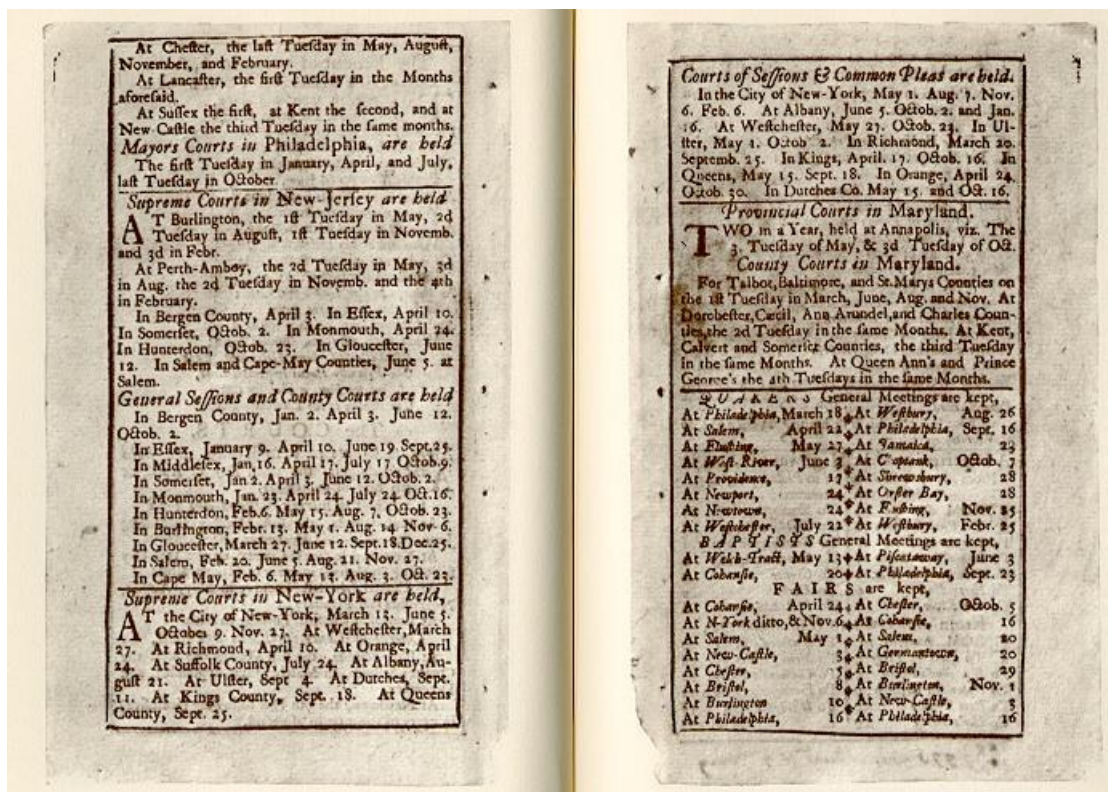 At Cheſter, the laſt Tueſday in May, Auguſt,
November, and February.
At Lancaſter, the firſt Tueſday in the Months
aforeſaid.
At Suſſex the firſt, at Kent the ſecond, and at
New-Caſtle the third Tueſday in the ſame months.
Mayors Courts in Philadelphia, are held
The firſt Tueſday in January, April, and July,
laſt Tueſday in October.
Supreme Courts in New-Jerſey are held
AT Burlington, the 1ſt Tueſday in May, 2d
Tueſday in Auguſt, 1ſt Tueſday in Novemb.
and 3d in Febr.
At Perth-Amboy, the 2d Tueſday in May, 3d
in Aug. the 2d Tueſday in Novemb. and the 4th
in February.
In Bergen County, April 3. In Eſſex, April 10.
In Somerſet, Octob. 2. In Monmouth, April 24.
In Hunterdon, Octob. 23. In Glouceſter, June
12. In Salem and Cape-May Counties, June 5. at
Salem.
General Seſſions and County Courts are held
In Bergen County, Jan. 2. April 3. June 12.
Octob. 2.
In Eſſex, January 9. April 10. June 19. Sept. 25.
In Middleſex, Jan. 16. April 17. July 17 Octob. 9.
In Somerſet, Jan 2. April 3. June 12. Octob. 2.
In Monmouth, Jan. 23. April 24. July 24. Oct. 16.
In Hunterdon, Feb. 6. May 15. Aug. 7. Octob. 23.
In Burlington, Febr. 13. May 1. Aug. 14. Nov. 6.
In Glouceſter, March 27. June 12. Sept. 18. Dec. 25.
In Salem, Feb. 20. June 5. Aug. 21. Nov. 27.
In Cape May, Feb. 6. May 13. Aug. 3. Oct. 23.
Supreme Courts in New-York are held,
AT the City of New-York, March 13. June 5.
Octobes 9. Nov. 27. At Weſtcheſter, March
27. At Richmond, April 10. At Orange, April
24. At Suffolk County, July 24. At Albany, Au-
guſt 21. At Ulſter, Sept 4. At Dutches, Sept.
11. At Kings County, Sept. 18. At Queens
County, Sept. 25.
Courts of Seſſions & Common Pleas are held.
In the City of New-York, May 1. Aug. 7. Nov.
6. Feb. 6. At Albany, June 5. Octob. 2. and Jan.
16. At Weſtcheſter, May 27. Octob. 23. In Ul-
ſter, May 1. Octob 2. In Richmond, March 20.
Septemb. 25. In Kings, April. 17. Octob. 16. In
Queens, May 15. Sept. 18. In Orange, April 24.
Octob. 30. In Dutches Co. May 15. and Oct. 16.
Provincial Courts in Maryland.
TWO in a Year, held at Annapolis, viz. The
3. Tueſday of May, & 3d Tueſday of Oct.
County Courts in Maryland.
For Talbot, Baltimore, and St. Marys Counties on
the 1ſt Tueſday in March, June, Aug. and Nov. At
Dorcheſter, Cæcil, Ann Arundel, and Charles Coun-
ties, the 2d Tueſday in the ſame Months. At Kent,
Calvert and Somerſet Counties, the third Tueſday
in the ſame Months. At Queen Ann's and Prince
George's the 4th Tueſdays in the ſame Months.
QUAKERS General Meetings are kept,
At Philadelphia, March 18 At Weſtbury, Aug. 26
At Salem, April 22 At Philadelphia, Sept. 16
At Fluſhing, May 27 At Jamaica, 23
At Weſt-River, June 3 At Captank, Octob. 7
At Providence, 17 At Shrewsbury, 28
At Newport, 24 At Oyſter Bay, 28
At Newtown, 24 At Fluſhing, Nov. 25
At Weſtcheſter, July 22 At Weſtbury, Febr. 25
BAPTISTS General Meetings are kept,
At Welch-Tract, May 13 At Piſcataway, June 3
At Cohanſie, 20 At Philadelphia, Sept. 23
FAIRS are kept,
At Cohanſie, April 24 At Cheſter, Octob. 5
At N-York ditto, & Nov. 6 At Cohanſie, 16
At Salem, May 1 At Salem, 20
At New-Caſtle, 3 At Germantown, 20
At Cheſter, 5 At Briſtol, 29
At Briſtol, 8 At Burlington, Nov. 1
At Burlington 10 At New-Caſtle, 3
At Philadelphia, 16 At Philadelphia, 16